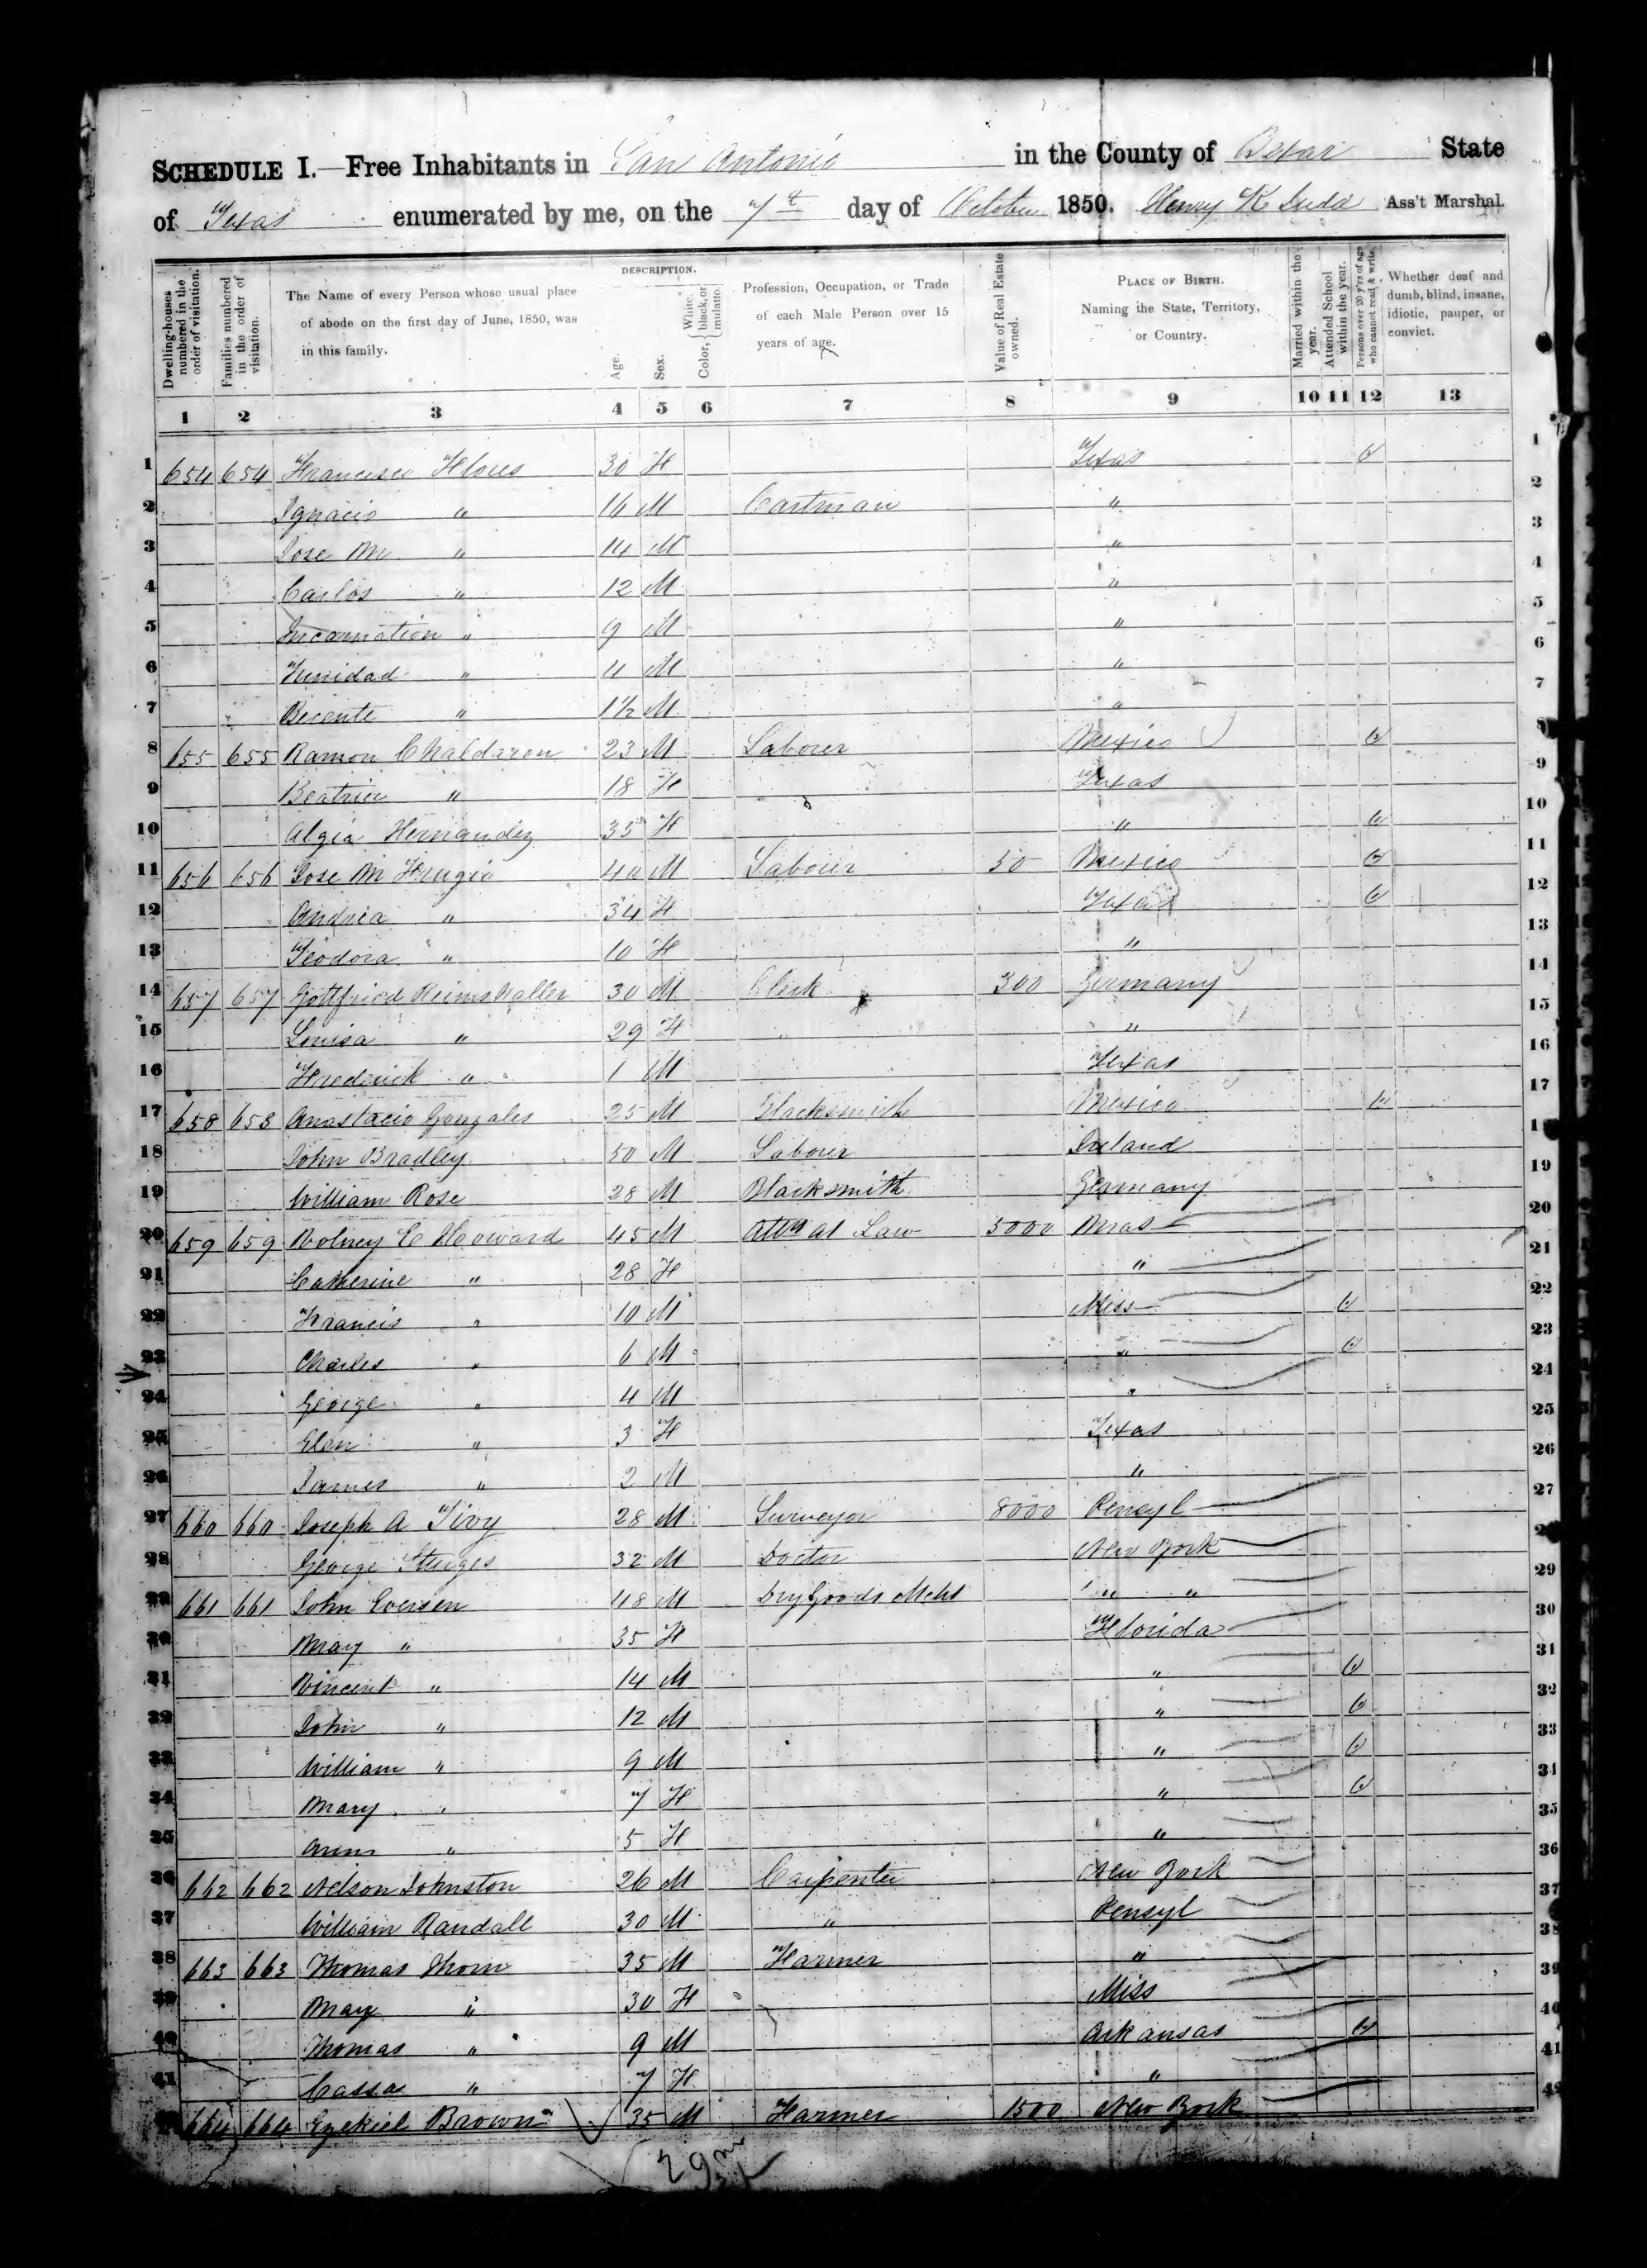 SCHEDULE I.—Free Inhabitants in San Antonio in the County of Bexar State
of Texas enumerated by me, on the 7th day of October 1850. Henry K Judd Ass't Marshal.
Dwelling-houses numbered in the order of visitation.
Families numbered in the order of visitation.
The Name of every Person whose usual place of abode on the first day of June, 1850, was in this family.
DESCRIPTION.
Age.
Sex.
Color, { White, black, or mulatto.
Profession, Occupation, or Trade of each Male Person over 15 years of age.
Value of Real Estate owned.
PLACE OF BIRTH. Naming the State, Territory, or Country.
Married within the year.
Attended School within the year.
Persons over 20 y'rs of age who cannot read & write.
Whether deaf and dumb, blind, insane, idiotic, pauper, or convict.
1 2 3 4 5 6 7 8 9 10 11 12 13
1 654 654 Francisco Flores 30 F Texas 1
2 Ignacio " 16 M Cartman " 2
3 Jose M " 14 M " 3
4 Carlos " 12 M " 4
5 Incarnation " 9 M " 5
6 Trinidad " 4 M " 6
7 Becente " 1½ M " 7
8 655 655 Ramon Chaldaron 23 M Labourer Mexico
9 Beatrice " 18 F Texas 9
10 Algia Hernandez 35 F " 10
11 656 656 Jose M 40 M Labourer 50 Mexico 11
12 Andrea " 34 F Texas 12
13 Teodora " 10 F " 13
14 657 657 Gottfried 30 M Clerk 300 Germany 14
15 Louisa " 29 F " 15
16 Frederick " 1 M Texas 16
17 658 658 Anastacio Gonzales 25 M Blacksmith Mexico 17
18 John Bradley 50 M Labourer Ireland
19 William Rose 28 M Blacksmith Germany 19
20 659 659 Volney E Howard 45 M Atty at Law 5000 Mass 20
21 Catherine " 28 F " 21
22 Francis " 10 M Miss 22
23 Charles " 6 M " 23
24 George " 4 M " 24
25 Elen " 3 F Texas 25
26 James " 2 M " 26
27 660 660 Joseph A Tivy 28 M Surveyor 8000 Pensyl 27
28 George Sturges 32 M Doctor New York
29 661 661 John Eversen 48 M Dry Goods Mcht " " 29
30 Mary " 35 F Florida 30
31 Vincent " 14 M " 31
32 John " 12 M " 32
33 William " 9 M " 33
34 Mary " 7 F " 34
35 Ann " 5 F " 35
36 662 662 Nelson Johnston 26 M Carpenter New York 36
37 William Randall 30 M " Pensyl 37
38 663 663 Thomas Thorn 35 M Farmer " 38
39 Mary " 30 F Miss 39
40 Thomas " 9 M Arkansas 40
41 Cassa " 7 F " 41
664 664 Ezekiel Brown 35 M Farmer 1500 New York 42